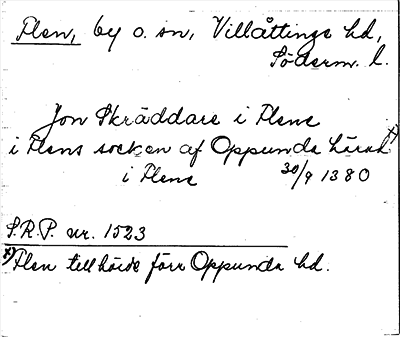 Flen, by o. sn, Villåttinge hd,
Söderm. l.
Jon Skräddare i Flene
i Flens socken af Oppunda härad x)
i Flene 30/9 1380
S.R.P. nr. 1523
x) Flen tillhörde förr Oppunda hd.